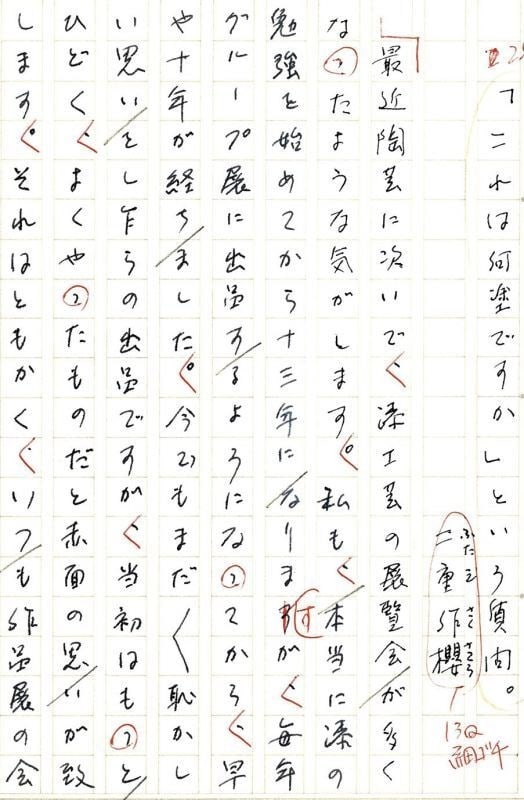 「これは何塗ですか」という質問。
二重作櫻
ふたえ さく さくら
13Q
細ゴチ
最近陶芸に次いで、漆工芸の展覧会が多く
なったような気がします。私も、本当に漆の
勉強を始めてから十三年になりますが、毎年
グループ展に出品するようになってから、早
や十年が経ちました。今でもまだ〱恥かし
い思いをし乍らの出品ですが、当初はもっと
ひどく、よくやったものだと赤面の思いが致
します。それはともかく、いつも作品展の会